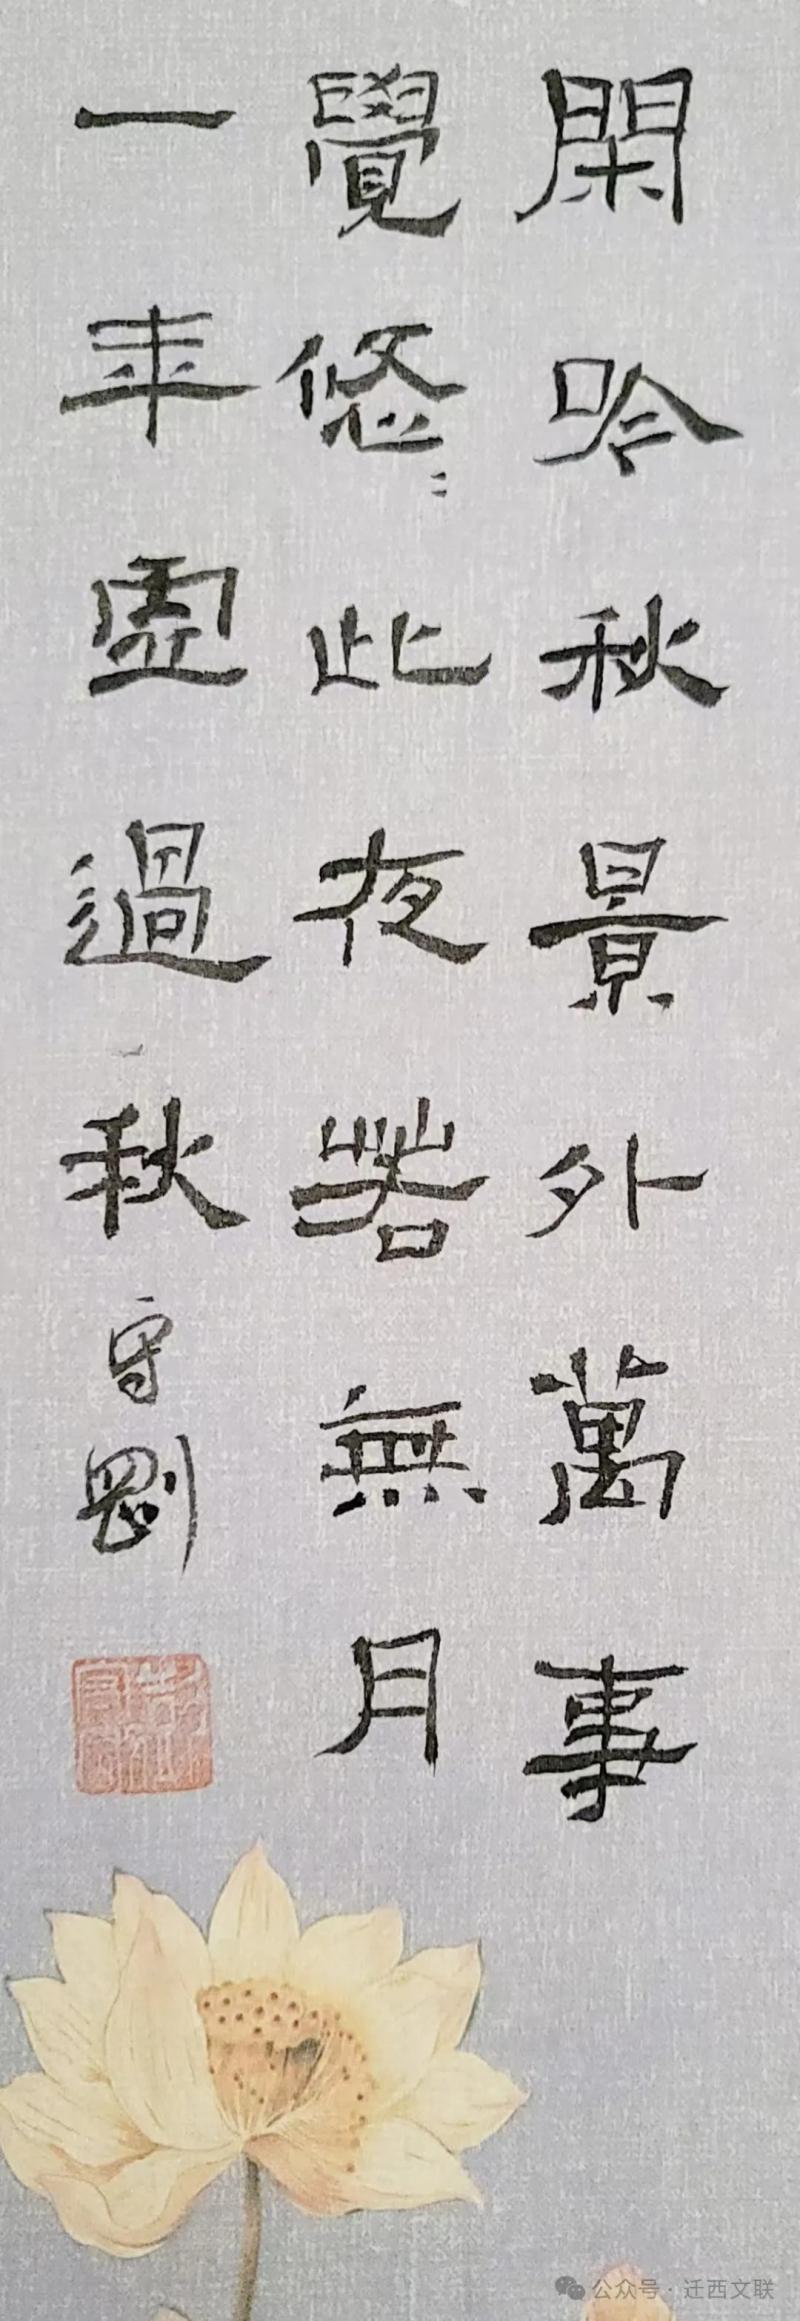 閑吟秋景外萬事
覺悠〻此夜若無月
一年虛過秋
守剛
公众号·迁西文联